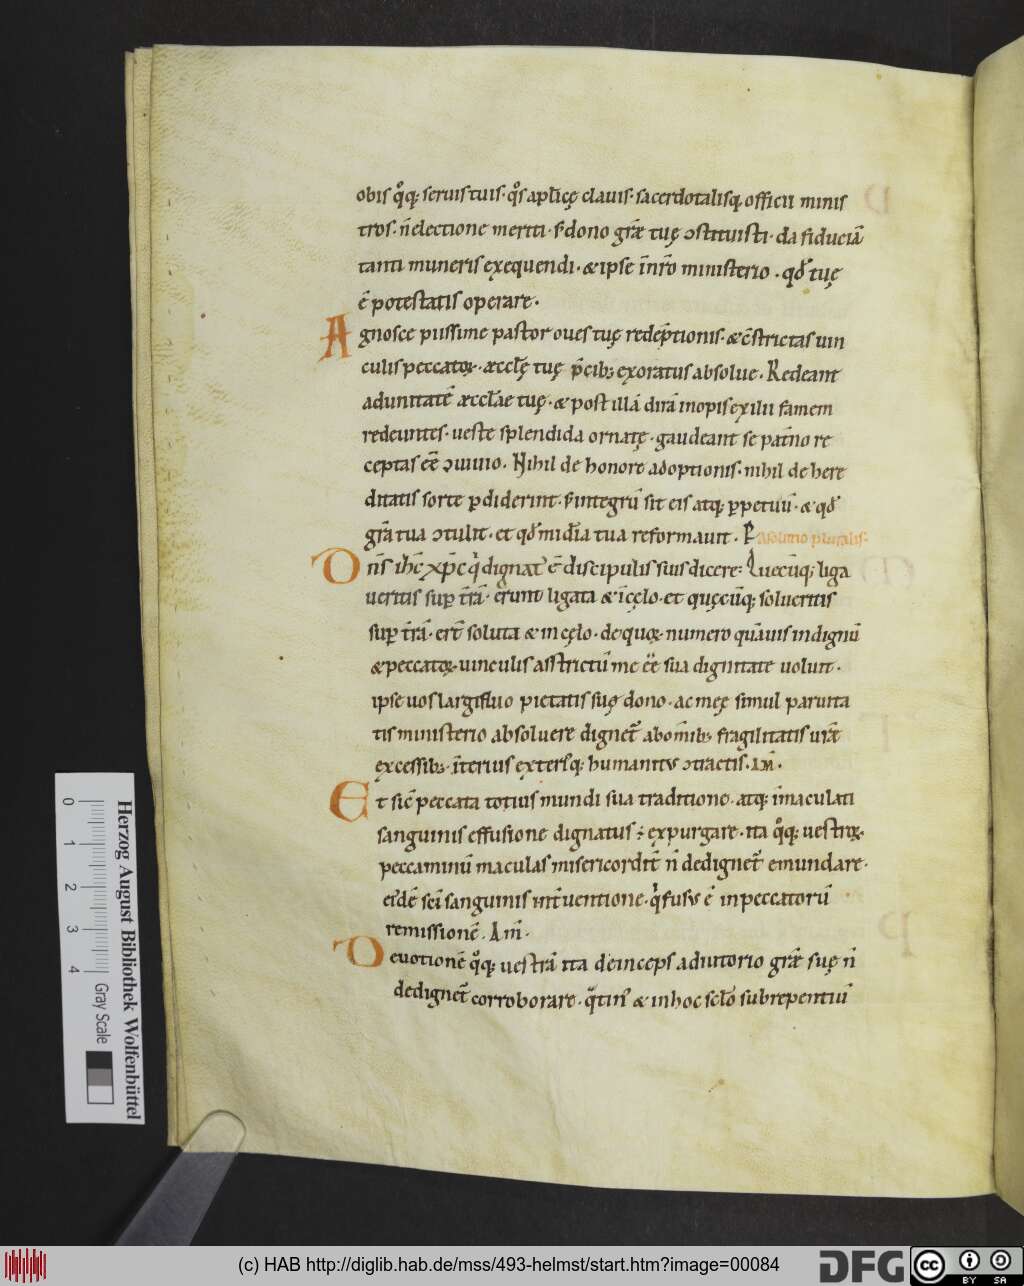 obis q̊q; seruis tuis· q̊s aplicę clauis· sacerdotalisq; officii minis
tros· n̄ electione meriti· s; dono gr̄ę tuę ↄstituisti· da fiduciā
tanti muneris exequendi· & ipse īnr̄o ministerio· qđ tuę
ē potestatis operare·
Agnosce piissime pastor oues tuę redēptionis· & c̄strictas uin
culis peccatoꝝ· æccłę tuę p̄cib; exoratus absolue· Redeant
ad unitatē æccłae tuę· & post illā dirā inopis exilii famem
redeuntes· ueste splendida ornatę· gaudeant se pat̄no re
ceptas eē̄ ↄuiuio. Nihil de honore adoptionis· nihil de here
ditatis sorte ꝑdiderint· s; integrū sit eis atq; ꝑpetuū· & qđ
gr̄a tua ↄtulit· et qđ mīdia tua reformauit· P
Absolutio pluralis·
Dn̄s ih̄c xp̄c q̇ dignat᷒ ē discipulis suis dicere: Quecūq; liga
ueritis suꝑ t̄rā· erunt ligata & ī cęlo· et quęcūq; solueritis
suꝑ t̄rā· er̄t soluta & in cęlo· de quoꝝ numero quāuis indignū
& peccatoꝝ uinculis asstrictū me eē̄ sua dignitate uoluit·
ipse uos largifluo pietatis suę dono· ac meę simul paruita
tis ministerio absoluere dignet᷒ ab om̄ib; fragilitatis ur̄ę
excessib; īterius exterisq; humanitus ↄtractis· am̄·
Et sic̄ peccata totius mundi sua traditione· atq; īmaculati
sanguinis effusione dignatus ÷ expurgare· ita q̊q; uestroꝝ·
peccaminū maculas misericordit̄ n̄ dedignet᷒ emundare·
eisdē sc̄i sanguinis int̄uentione· q̇ fusus ē in peccatorū
remissionē. Am̄·
Deuotionē q̊q; uestrā ita deinceps adiutorio gr̄ę suę n̄
dedignet᷒ corroborare· q̄tin᷒ & in hoc scło subrepentiū
0 1 2 3 4
Gray Scale
Herzog August Bibliothek Wolfenbüttel
(c) HAB http://diglib.hab.de/mss/493-helmst/start.htm?image=00084
DFG
cc BY SA